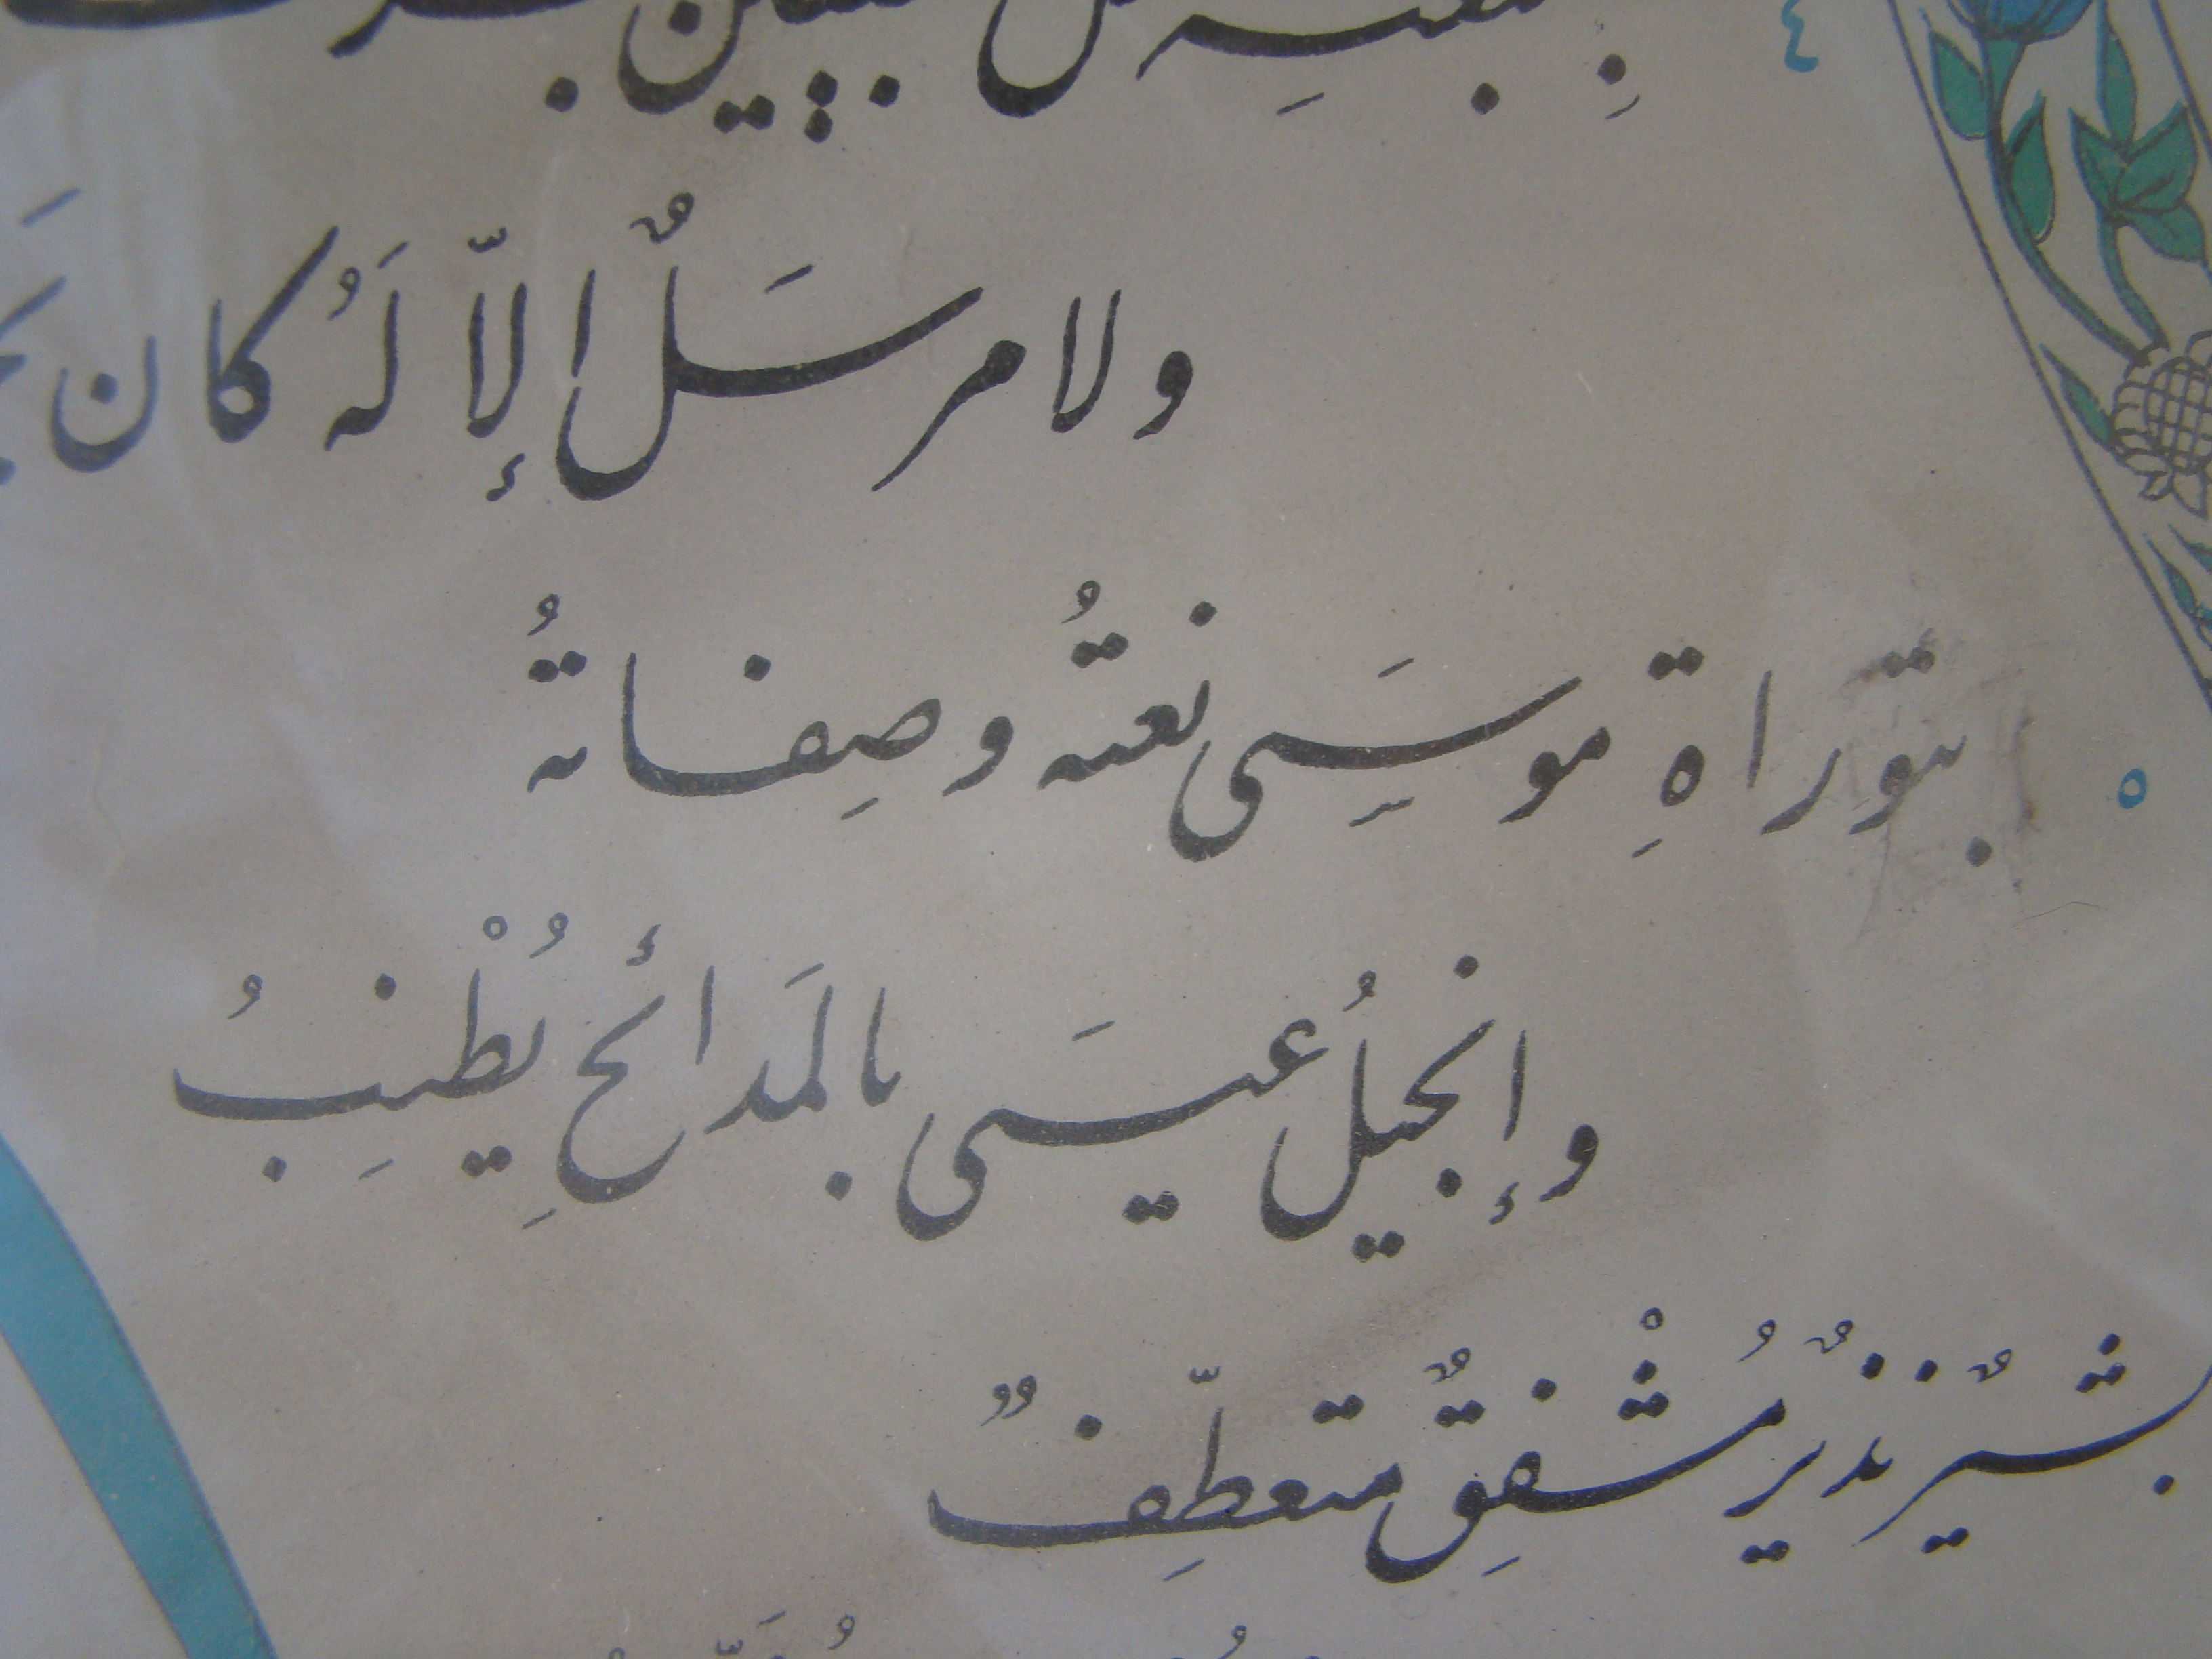 ٤
ولا مرسَلٌ إلاّ لَهُ كان
٥ بتوّراةِ موسَِى نعتهُ وصِفاتهُ
وإنجيلُ عيسَى بالمَدائحِ يُطْنِبُ
بشيرٌ نذيرٌ مُشْفِقٌ متعطِّفٌ